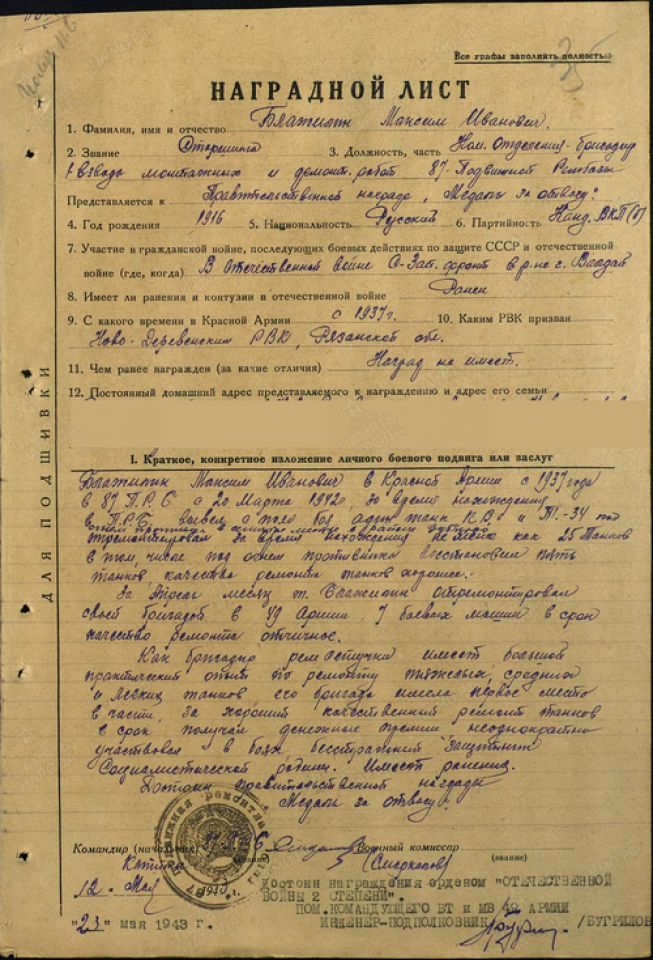 Все графы заполнить полностью
НАГРАДНОЙ ЛИСТ
1. Фамилия, имя и отчество Блажилин Максим Иванович.
2. Звание Старшина 3. Должность, часть Ком. Отделения-бригадир
взвода монтажных и демонт. работ 87-Подвижной Рембазы
Представляется к Правительственной награде „Медаль за отвагу"
4. Год рождения 1916 5. Национальность Русский 6. Партийность Канд. ВКП(б)
7. Участие в гражданской войне, последующих боевых действиях по защите СССР и отечественной
войне (где, когда) В Отечественной войне С-Зап. фронт в р-не г. Валдай
8. Имеет ли ранения и контузии в отечественной войне Ранен
9. С какого времени в Красной Армии с 1937 г. 10. Каким РВК призван
Ново-Деревенским РВК, Рязанской обл.
11. Чем ранее награжден (за какие отличия) Наград не имеет.
12. Постоянный домашний адрес представляемого к награждению и адрес его семьи
ДЛЯ ПОДШИВКИ
I. Краткое, конкретное изложение личного боевого подвига или заслуг
Блажилин Максим Иванович в Красной Армии с 1937 года
в 87 П.Р.Б с 20 Марта 1942г. за время нахождения
в П.Р.Б. вывел с поля боя один танк К.В. и Т-34 под
огнем противника
отремонтировал за время нахождения не менее как 25 Танков
в том, числе под огнем противника восстановил пять
танков, качество ремонта танков хорошее.
За Апрель месяц т. Блажилин отремонтировал
своей бригадой в 49 Армии 7 боевых машин в срок
качество ремонта отличное.
Как бригадир рем летучки имеет большой
практический опыт по ремонту тяжелых, средних
и легких танков его бригада имела первое место
в части, за хороший качественный ремонт танков
в срок получал денежные премии, неоднократно
участвовал в боях, бесстрашный защитник
Социалистической родины. Имеет ранения.
Достоин правительственной награды
Медаль за отвагу.
Командир (начальник) 87 П.Р.Б Военный комиссар
(звание)
12 - Мая
Достоин награждения орденом "ОТЕЧЕСТВЕННОЙ
ВОЙНЫ 2 СТЕПЕНИ".
ПОМ.КОМАНДУЮЩЕГО БТ и МВ 49 АРМИИ
"23" мая 1943 г. ИНЖЕНЕР-ПОДПОЛКОВНИК /БУГРИЛОВ